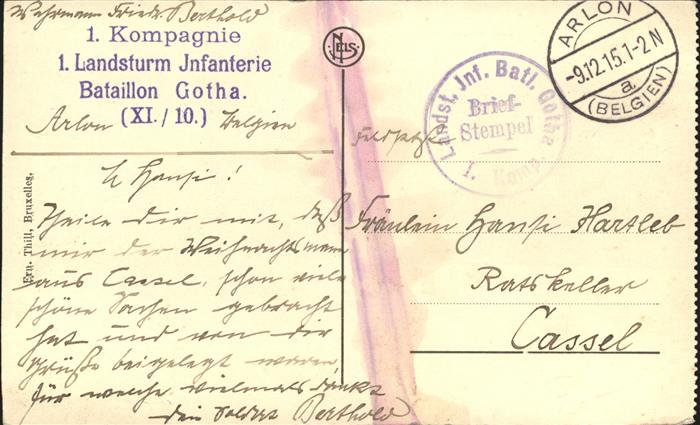 Wehrmann Friedr. Berthold
1. Kompagnie
1. Landsturm Jnfanterie
Bataillon Gotha.
(XI. / 10.)
Arlon Belgien
L. Hansi!
Theile dir mit, daß
mir der Weihnachtsmann
aus Cassel, schon viele
schöne Sachen gebracht
hat und von dir
Grüße beigelegt waren,
für welche vielmals dankt
dein Soldat Berthold
Ern. Thill, Bruxelles.
NELS
Landst. Jnf. Batl. Gotha
Brief-
Stempel
1. Komp.
ARLON
-9.12.15.1-2N
a
(BELGIEN)
Fräulein Hansi Hartleb
Ratskeller
Cassel